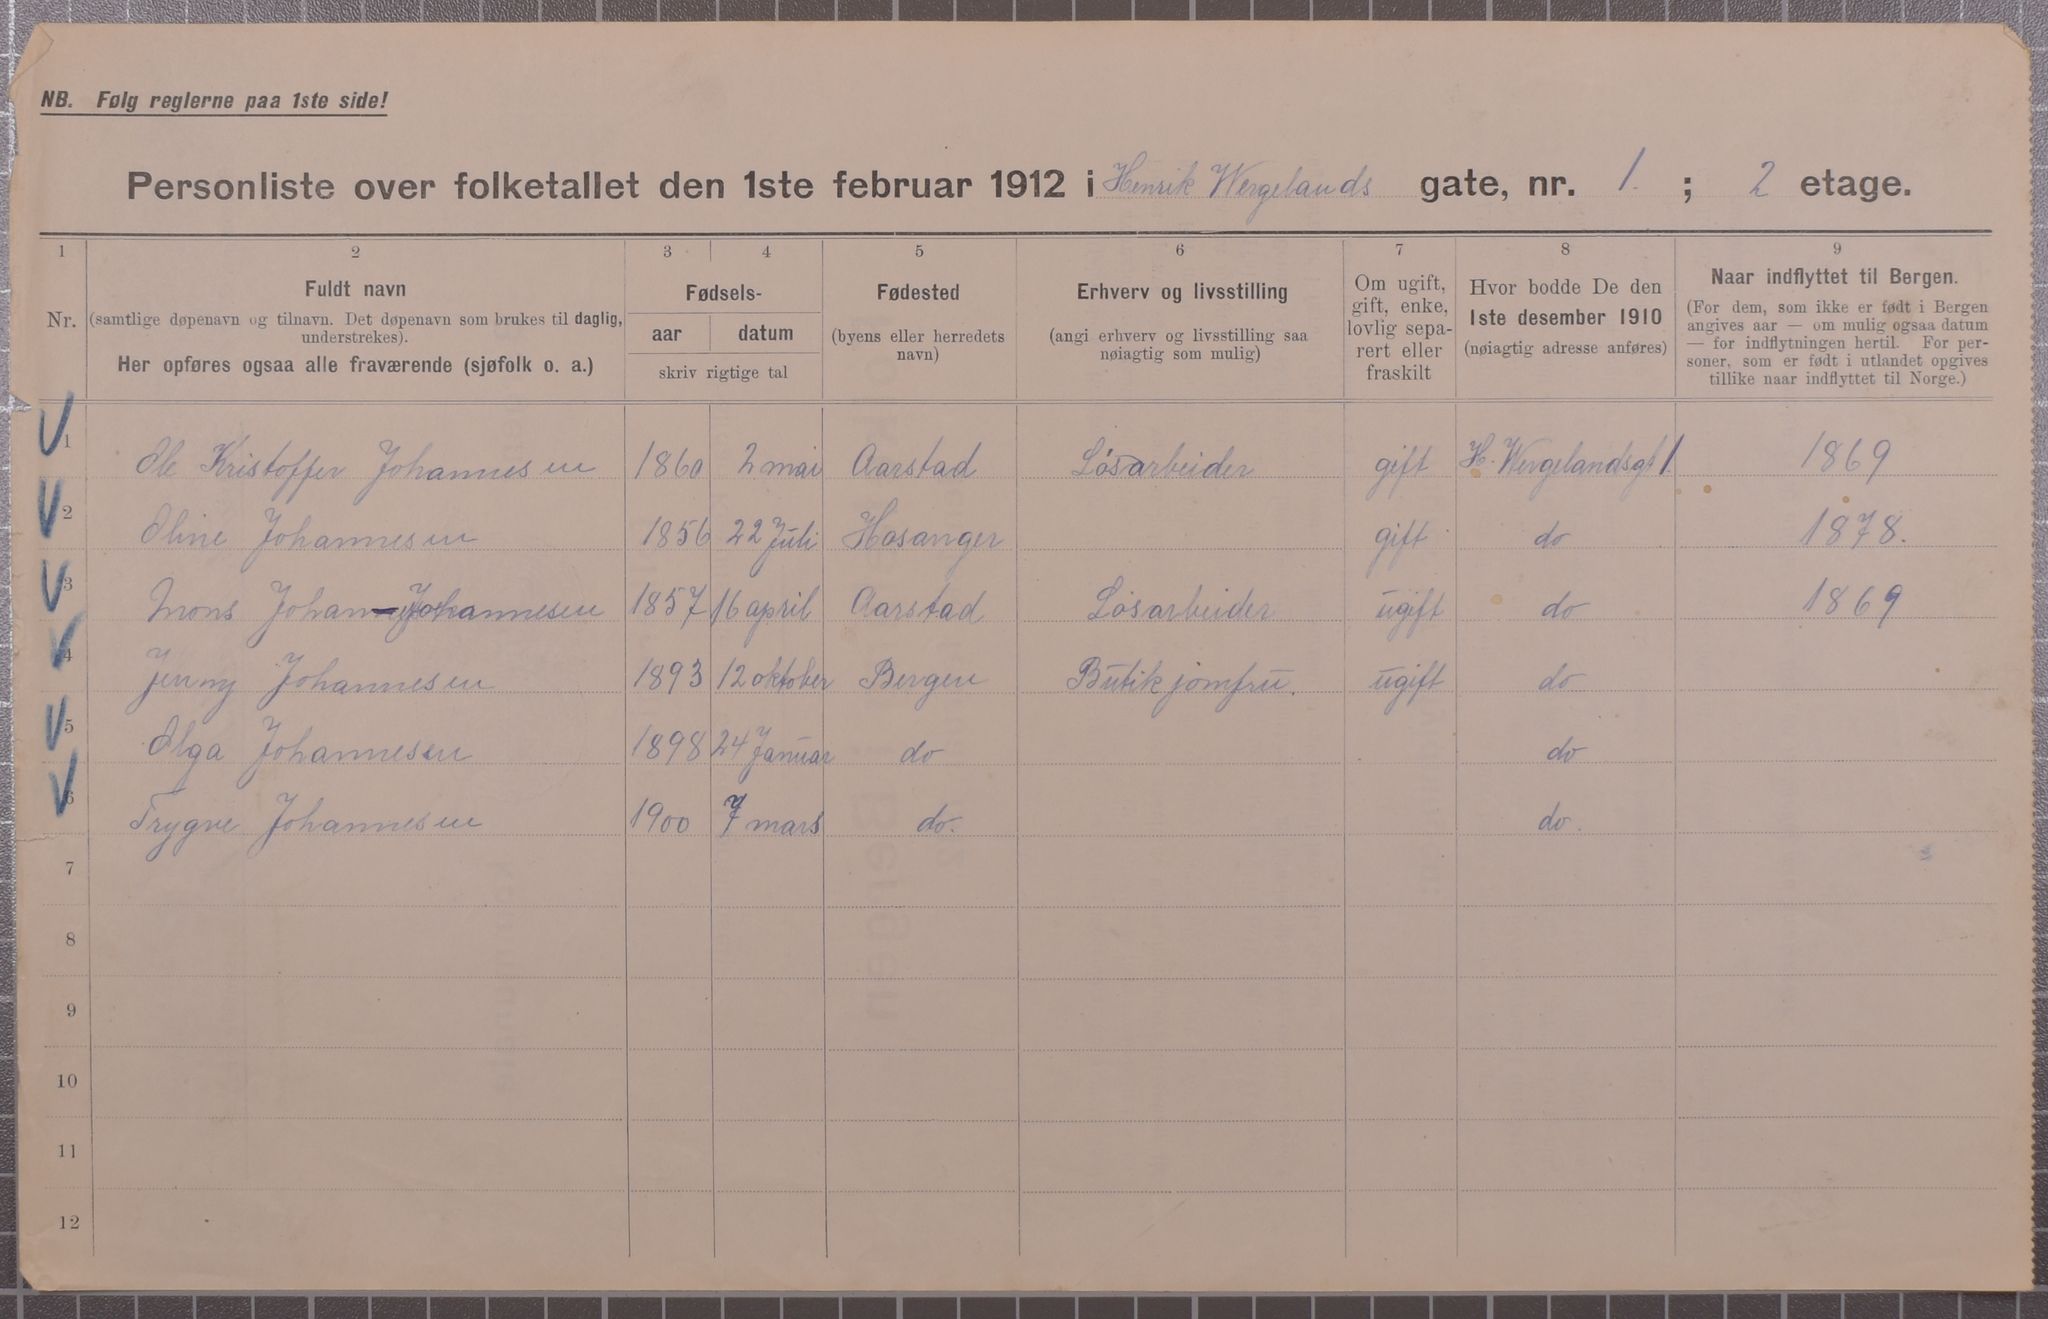 NB. Følg reglerne paa 1ste side!
Personliste over folketallet den 1ste februar 1912 i Henrik Wergelands gate, nr. 1. ; 2 etage.
1 2 3 4 5 6 7 8 9
Nr.
Fuldt navn
(samtlige døpenavn og tilnavn. Det døpenavn som brukes til daglig, understrekes).
Her opføres ogsaa alle fraværende (sjøfolk o. a.)
Fødsels-
aar datum
skriv rigtige tal
Fødested
(byens eller herredets
navn)
Erhverv og livsstilling
(angi erhverv og livsstilling saa
nøiagtig som mulig)
Om ugift,
gift, enke,
lovlig sepa-
rert eller
fraskilt
Hvor bodde De den
1ste desember 1910
(nøiagtig adresse anføres)
Naar indflyttet til Bergen.
(For dem, som ikke er født i Bergen
angives aar — om mulig ogsaa datum
— for indflytningen hertil. For per-
soner, som er født i utlandet opgives
tillike naar indflyttet til Norge.)
1 Ole Kristoffer Johannesen 1860 2 mai Aarstad Løsarbeider gift H. Wergelandsgt 1. 1869
2 Oline Johannesen 1856 22 Juli Hosanger gift do 1878.
3 Mons Johan Johannesen 1857 16 april Aarstad Løsarbeider ugift do 1869
4 Jenny Johannesen 1893 12 oktober Bergen Butikjomfru. ugift do
5 Olga Johannesen 1898 24 Januar do do
6 Trygve Johannesen 1900 7 mars do. do.
7
8
9
10
11
12